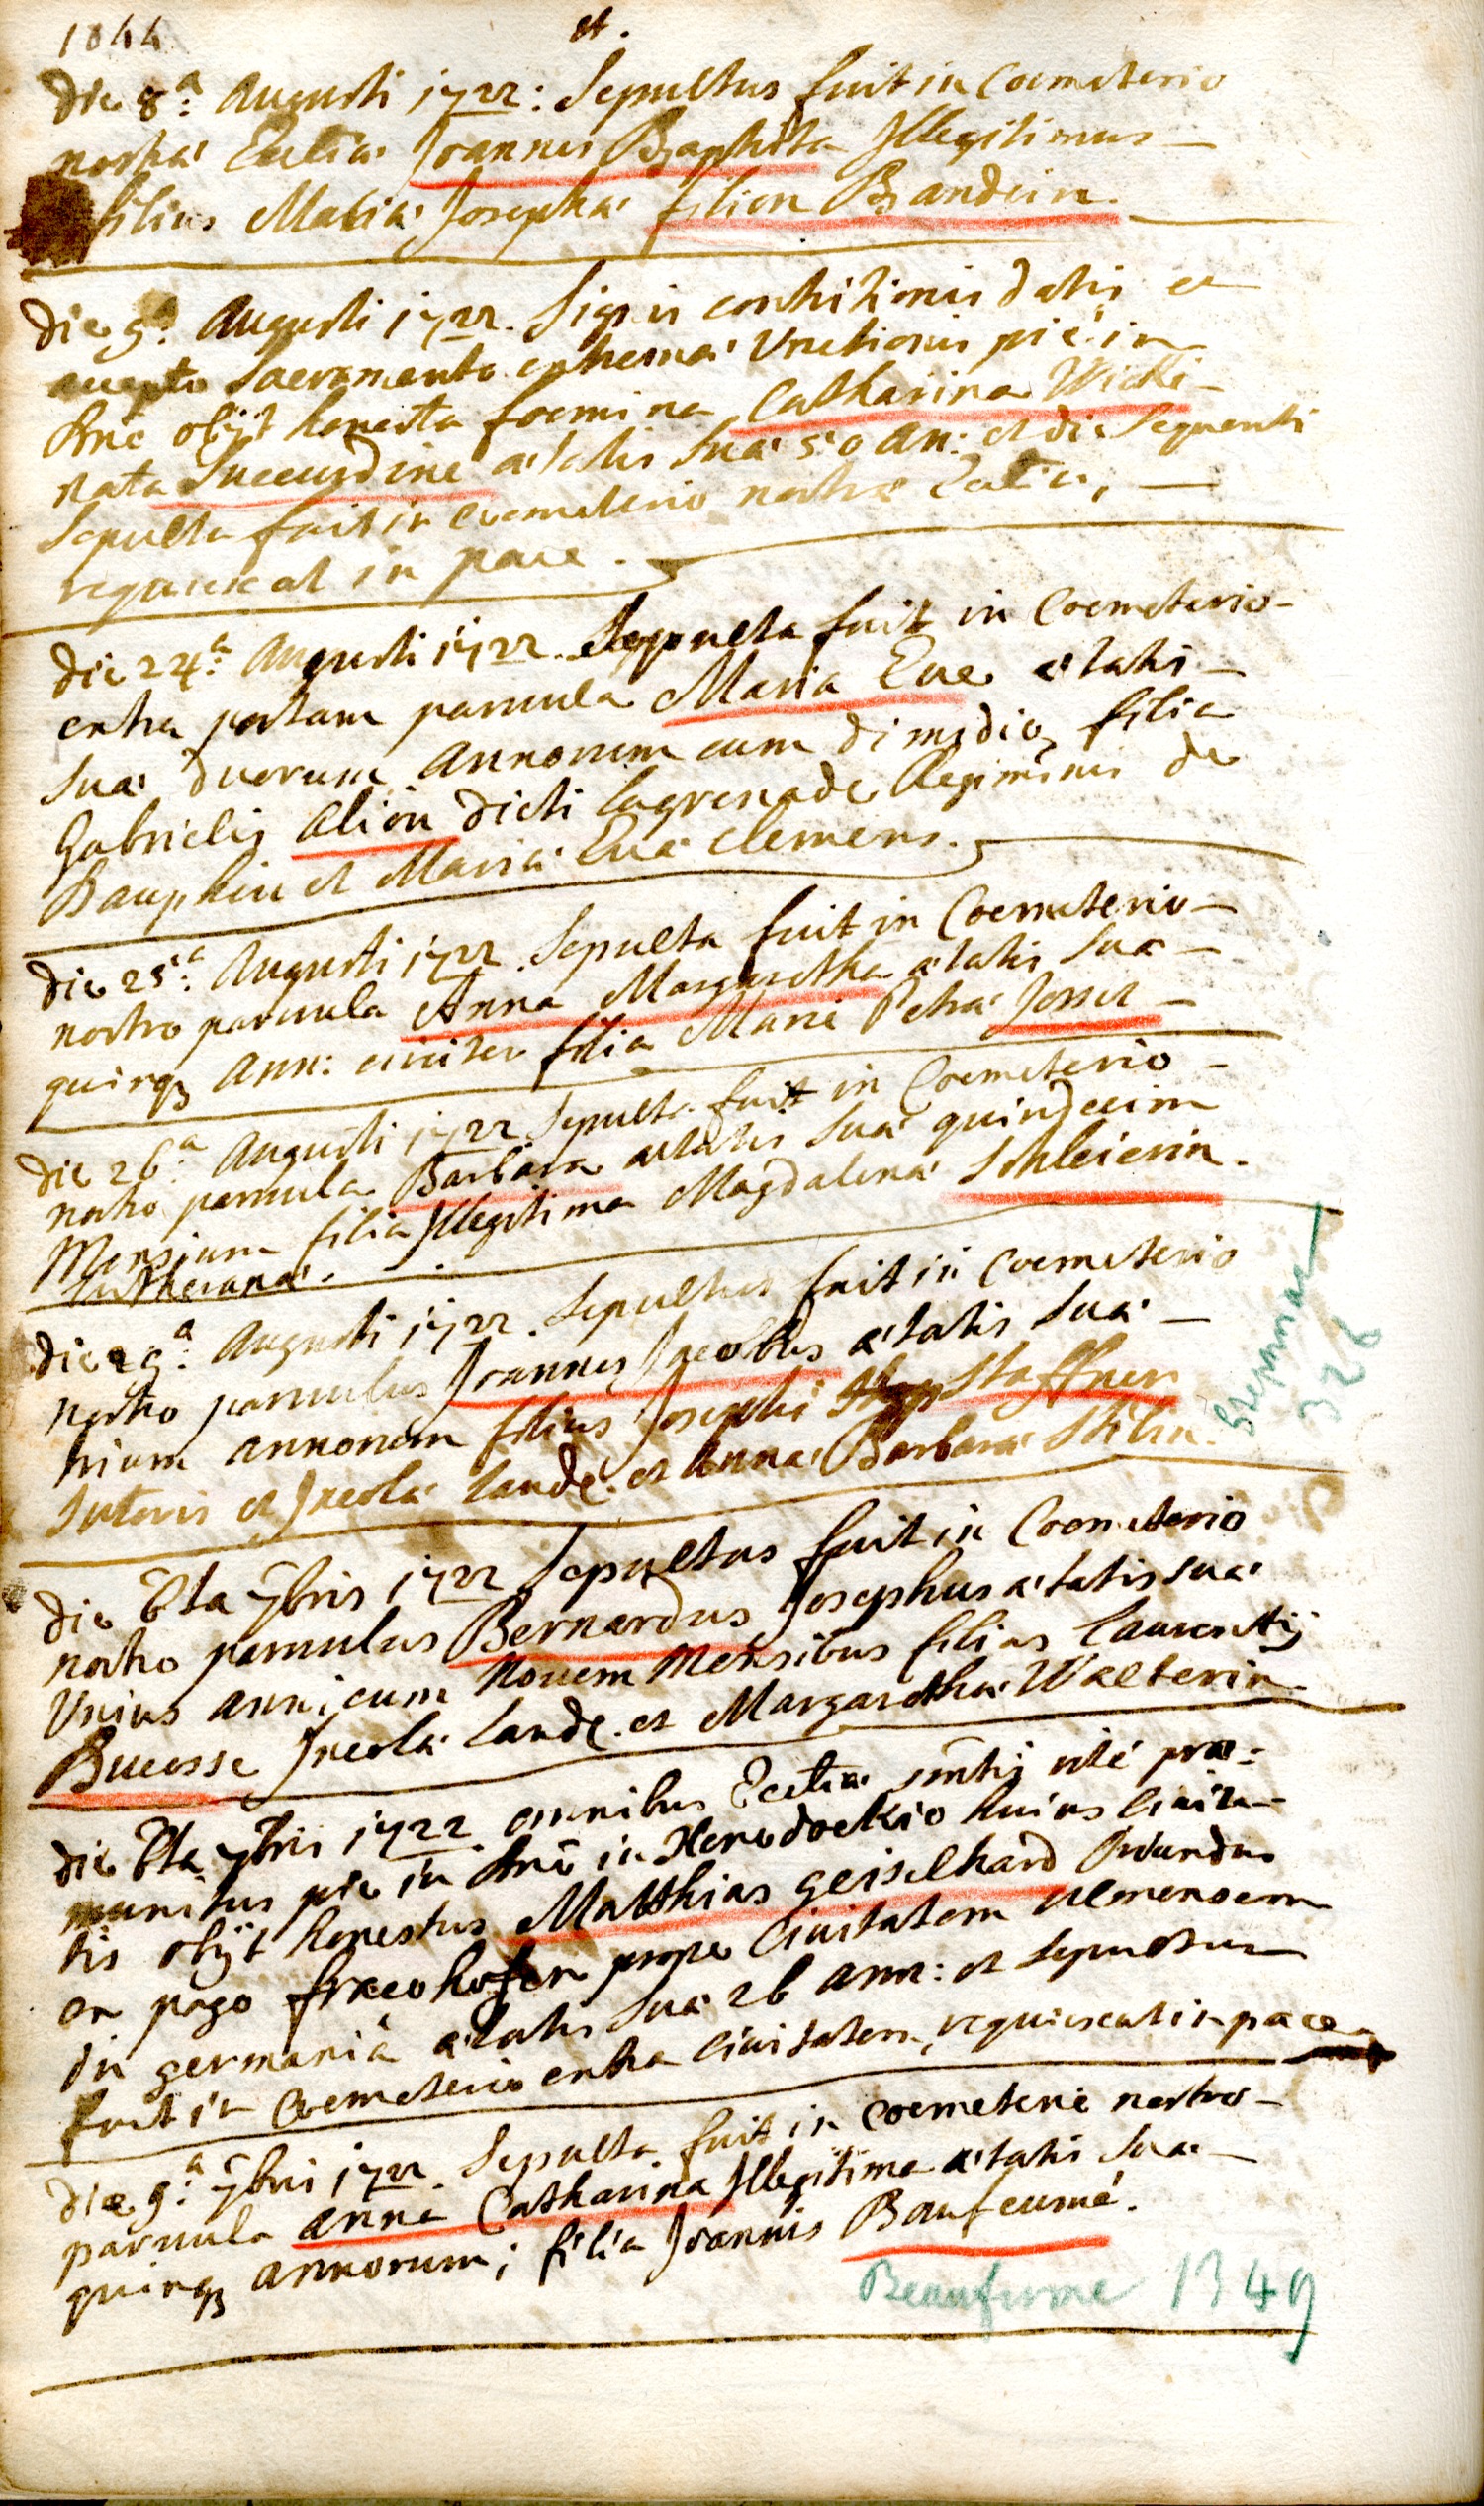 1844
et.
Die 8.a Augusti 1722: Sepultus fuit in Coemeterio
nostrae Eccliae Joannes Baptista Illegitimus
filius Mariae Josephae filion Brandein.
Die 9.a Augusti 1722. Signis contritionis datis et
accepto Sacramento extremae Unctionis piè in
dno obijt honesta foemina Catharina Wicki
nata Succurdine aetatis suae 50 an: et die sequenti
sepulta fuit in Coemeterio nostrae Eccliae,
requiescat in pace.
Die 24.a Augusti 1722. Sepulta fuit in Coemeterio
extra portam parvula Maria Eve aetatis
suae duorum annorum cum dimedio, filia
Gabrielis Alion dicti lagrenade Regiminis de
Dauphin et Mariae Evae Clemens.
Die 25.a Augusti 1722. Sepulta fuit in Coemeterio
nostro parvula Anna Margaretha aetatis suae
quinq ann: circiter filia Mariè Petrae Josset
Die 26.a Augusti 1722 Sepulta fuit in Coemeterio
nostro parvula Barbara aetatis suae quindecim
Mensium filia Illegitima Magdalenae Schleierin.
Lutheranae.
Die 29.a Augusti 1722. Sepultus fuit in Coemeterio
nostro parvulus Joannes Jacobus aetatis suae
trium annorum filius Josephi Staffner
Sutoris et Incolae Landae. et Annae Barbarae Stilin.
Stepnner
326
Die 6ta 7bris 1722. Sepultus fuit in Coemeterio
nostro parvulus Bernardus Josephus aetatis suae
Unius anni cum Novem Mensibus filius Laurentij
Bucosse Incolae Landae. et Margarethae Walterin
Die 6ta 7bris 1722. omnibus Eccliae smtis ritè prae=
munitus piè in dno in Xenodochio huius Civita-
tis obijt honestus Matthias geiselhard Oriundus
ex pago fraeohofen prope Civitatem Ulmensem
in germaniâ aetatis suae 26 ann: et sepultus
fuit in Coemeterio extra Civitatem, requiescat in pace
Die 9.a 7bris 1722. Sepulta fuit in coemeterio nostro
parvula Anna Catharina Illegitima aetatis suae
quinq annorum; filia Joannis Baufeumé.
Beaufumé 1349